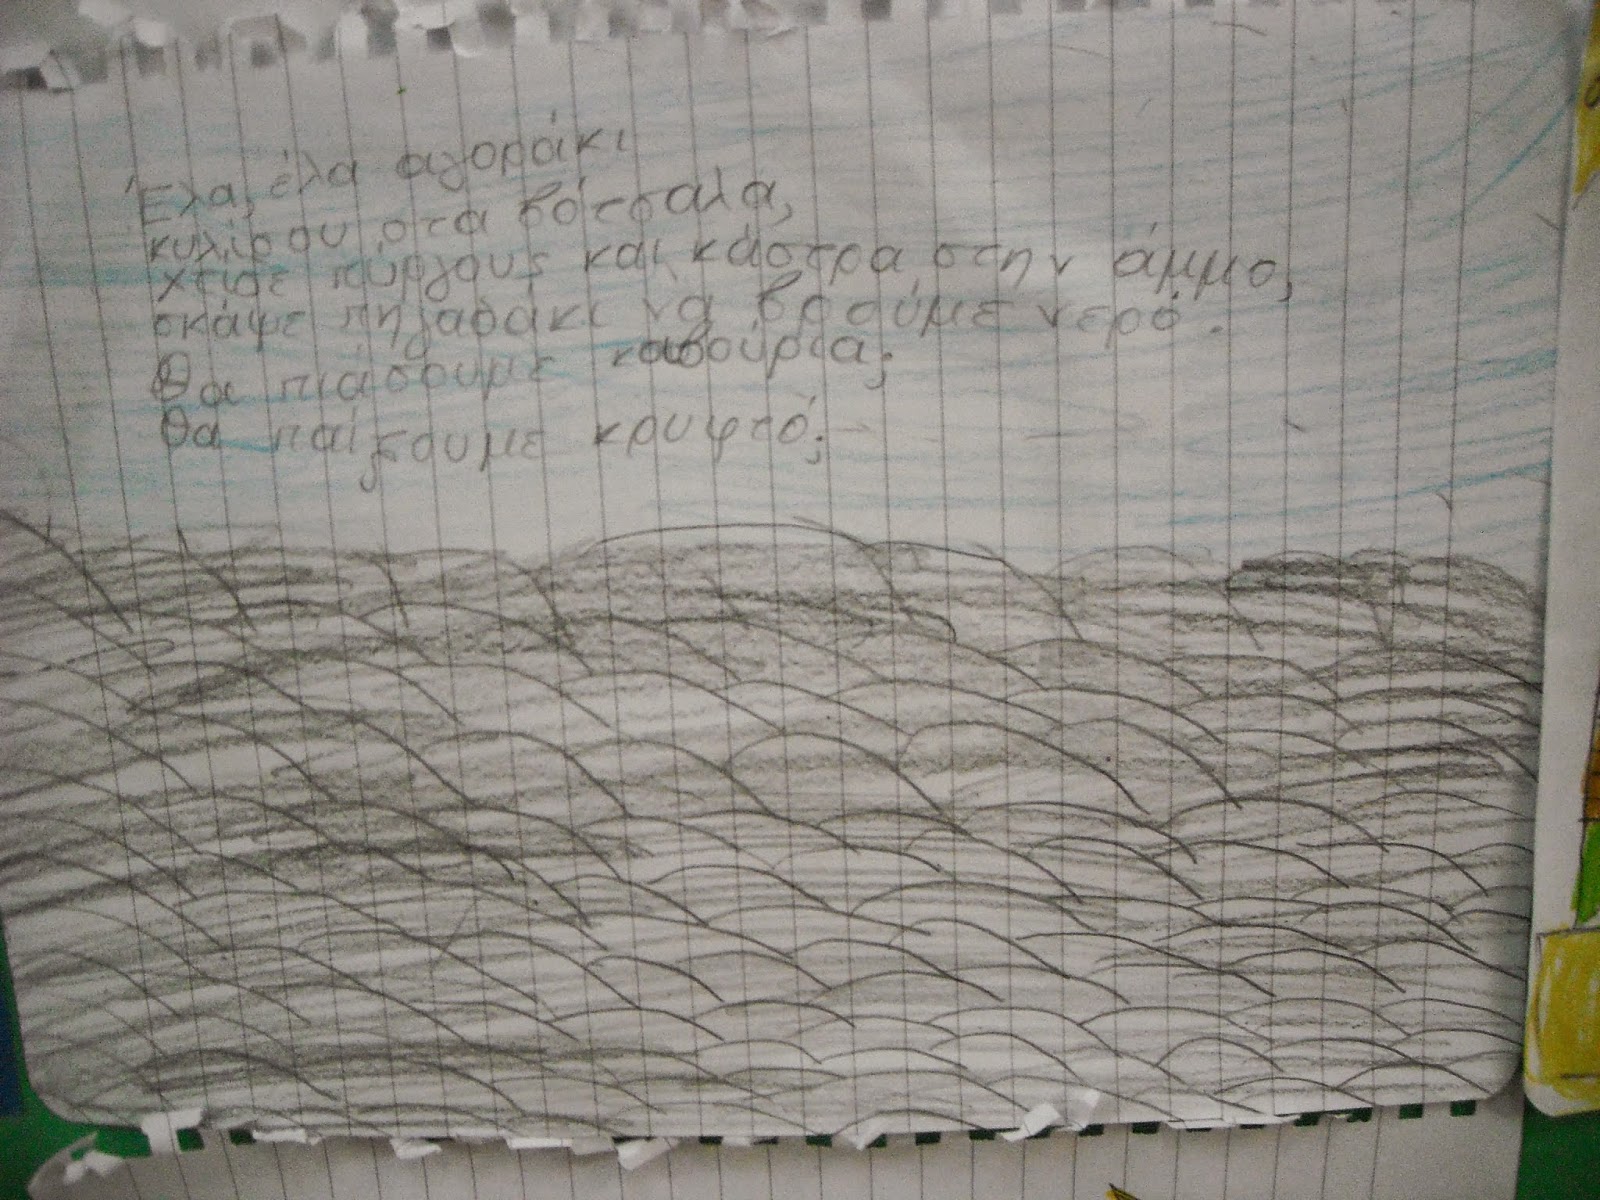 Έλα, έλα αγοράκι
κυλίσου στα βότσαλα,
χτίσε πύργους και κάστρα στην άμμο,
σκάψε πηγαδάκι να βρούμε νερό.
Θα πιάσουμε καβούρια;
Θα παίξουμε κρυφτό;